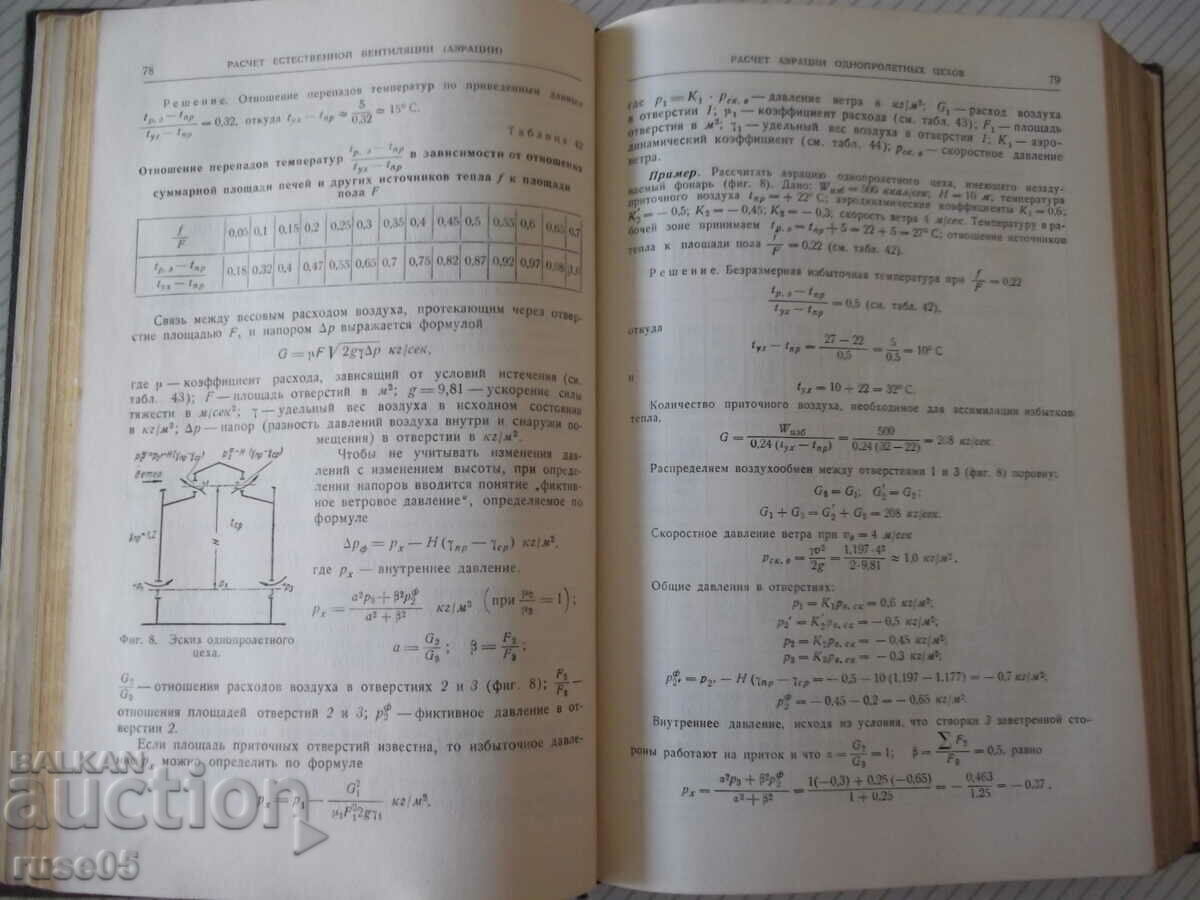 78
РАСЧЕТ ЕСТЕСТВЕННОЙ ВЕНТИЛЯЦИИ (АЭРАЦИИ)
Решение. Отношение перепадов температур по приведенным данным
(tр. з — tпр)/(tух — tпр) = 0,32, откуда tух — tпр = 5/0,32 = 15° С.
Таблица 42
Отношение перепадов температур (tр. з — tпр)/(tух — tпр) в зависимости от отношения
суммарной площади печей и других источников тепла f к площади
пола F
f/F 0,05 0,1 0,15 0,2 0,25 0,3 0,35 0,4 0,45 0,5 0,55 0,6 0,65 0,7
(tр. з — tпр)/(tух — tпр) 0,18 0,32 0,4 0,47 0,53 0,65 0,7 0,75 0,82 0,87 0,92 0,97 0,98
Связь между весовым расходом воздуха, протекающим через отвер-
стие площадью F, и напором Δp выражается формулой
G = μF√2gγΔp кг/сек,
где μ — коэффициент расхода, зависящий от условий истечения (см.
табл. 43); F — площадь отверстий в м²; g = 9,81 — ускорение силы
тяжести в м/сек²; γ — удельный вес воздуха в исходном состоянии
в кг/м³; Δp — напор (разность давлений воздуха внутри и снаружи по-
мещения) в отверстии в кг/м².
Чтобы не учитывать изменения дав-
лений с изменением высоты, при опреде-
лении напоров вводится понятие „фиктив-
ное ветровое давление“, определяемое по
формуле
Ветер
tср
pх
Δpф = pх — H (γпр — γср) кг/м²,
где pх — внутреннее давление.
pх = (a²p₃ + β²p₂ф)/(a² + β²) кг/м² (при μ₂/μ₃ = 1);
a = G₂/G₃; β = F₂/F₃;
Фиг. 8. Эскиз однопролетного
цеха.
G₂/G₃ — отношения расходов воздуха в отверстиях 2 и 3 (фиг. 8); F₂/F₃ —
отношения площадей отверстий 2 и 3; p₂ф — фиктивное давление в от-
верстии 2.
Если площадь приточных отверстий известна, то избыточное давле-
можно определить по формуле
pх = p₁ — G₁²/(μ₁F₁²2gγ₁) кг/м².
РАСЧЕТ АЭРАЦИИ ОДНОПРОЛЕТНЫХ ЦЕХОВ
79
где p₁ = K₁ · pск. в — давление ветра в кг/м²; G₁ — расход воздуха
в отверстии 1; μ₁ — коэффициент расхода (см. табл. 43); F₁ — площадь
отверстия в м²; γ₁ — удельный вес воздуха в отверстии 1; K₁ — аэро-
динамический коэффициент (см. табл. 44); pск. в — скоростное давление
ветра.
Пример. Рассчитать аэрацию однопролетного цеха, имеющего незаду-
ваемый фонарь (фиг. 8). Дано: Wизб = 500 ккал/сек; H = 10 м, температура
приточного воздуха tпр = + 22° С; аэродинамические коэффициенты K₁ = 0,6;
K₂′ = — 0,5; K₂ = — 0,45; K₃ = — 0,3; скорость ветра 4 м/сек. Температуру в ра-
бочей зоне принимаем tр. з = tпр + 5 = 22 + 5 = 27° С; отношение источников
тепла к площади пола f/F = 0,22 (см. табл. 42).
Решение. Безразмерная избыточная температура при f/F = 0,22
(tр. з — tпр)/(tух — tпр) = 0,5 (см. табл. 42),
откуда
tух — tпр = (27 — 22)/0,5 = 5/0,5 = 10° С
и
tух = 10 + 22 = 32° С.
Количество приточного воздуха, необходимое для ассимиляции избытков
тепла,
G = Wизб/(0,24 (tух — tпр)) = 500/(0,24 (32 — 22)) = 208 кг/сек.
Распределяем воздухообмен между отверстиями 1 и 3 (фиг. 8) поровну:
G₃ = G₁; G₂′ = G₂;
G₁ + G₃ = G₂′ + G₂ = 208 кг/сек.
Скоростное давление ветра при vв = 4 м/сек
pск. в = γv²/2g = 1,197·4²/2·9,81 ≈ 1,0 кг/м².
Общие давления в отверстиях:
p₁ = K₁pв. ск = 0,6 кг/м²;
p₂′ = K₂′pв. ск = — 0,5 кг/м²;
p₂ = K₂pв. ск = — 0,45 кг/м²;
p₃ = K₃pв. ск = — 0,3 кг/м²;
p₂′ф = p₂′ — H (γпр — γср) = — 0,5 — 10 (1,197 — 1,177) = — 0,7 кг/м²;
p₂ф = — 0,45 — 0,2 = — 0,65 кг/м².
Внутреннее давление, исходя из условия, что створки 3 заветренной сто-
роны работают на приток и что α = G₂/G₃ = 1; β = ∑F₂/F₃ = 0,5, равно
pх = (a²p₃ + β²p₂ф)/(a² + β²) = (1(—0,3) + 0,25 (—0,65))/(1 + 0,25) = — 0,463/1,25 = — 0,37.
BALKAN
auction
ruse05